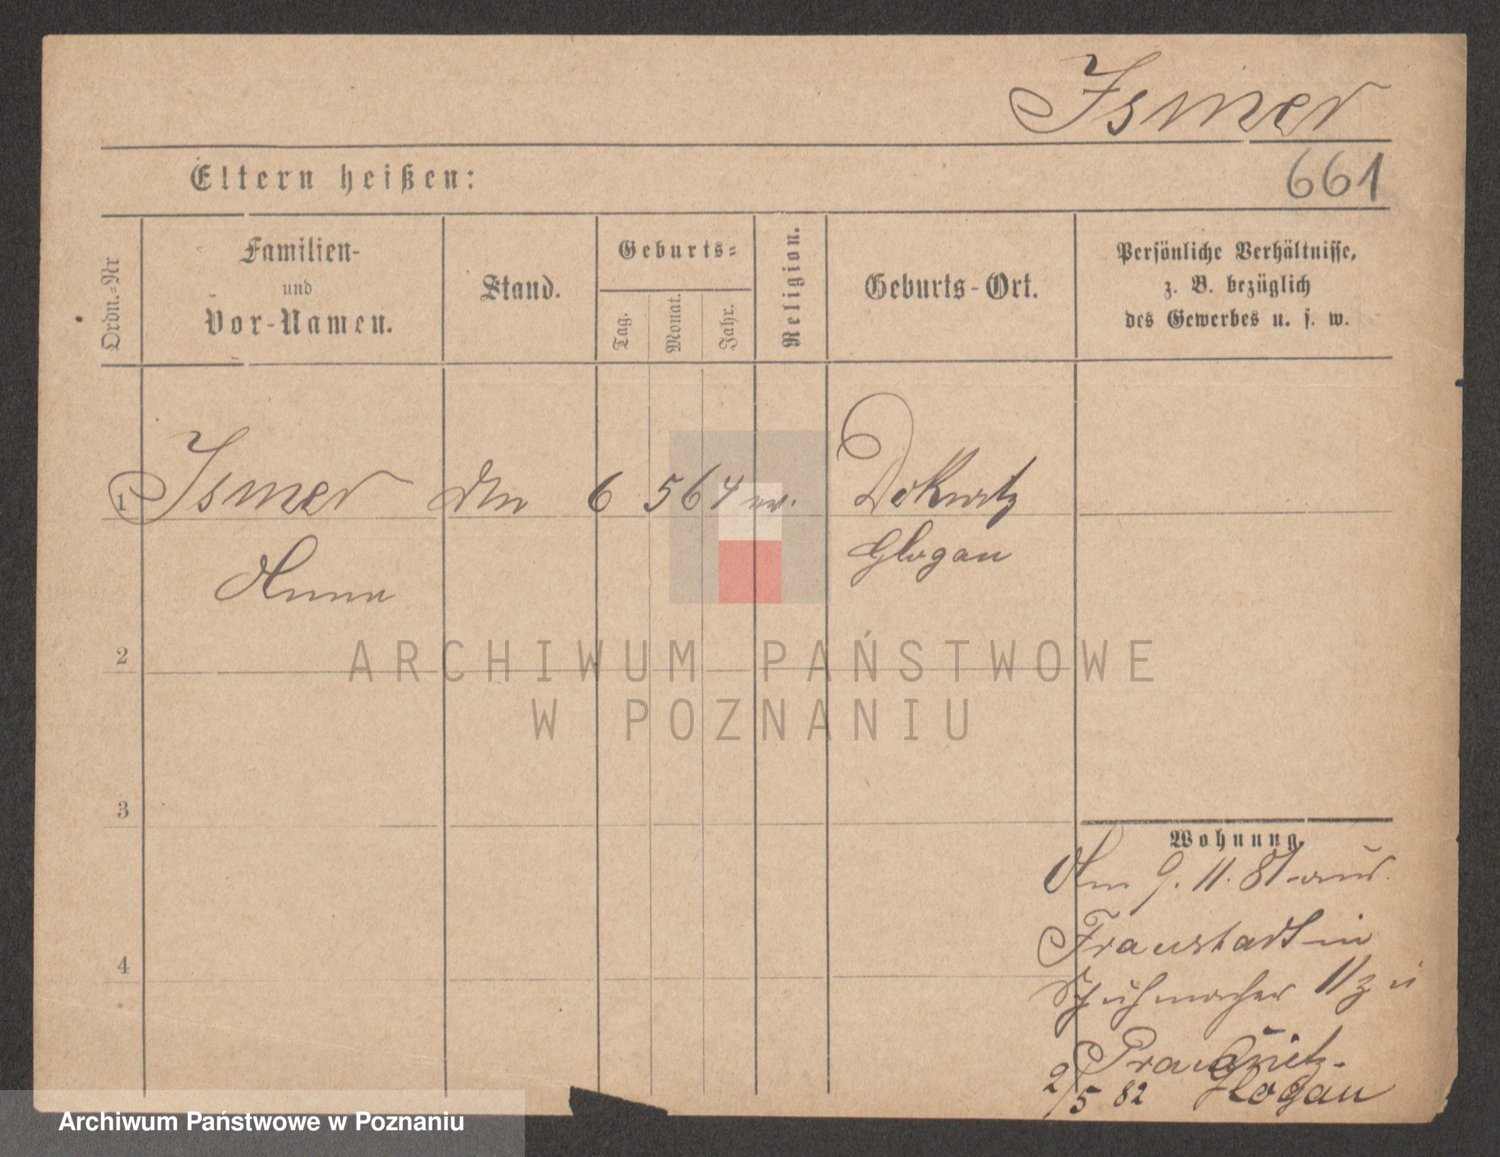 Ismer
661
Eltern heißen:
Ordn.-Nr
Familien-
und
Vor-Namen.
Stand.
Geburts-
Tag.
Monat.
Jahr.
Religion.
Geburts-Ort.
Persönliche Verhältnisse,
z. B. bezüglich
des Gewerbes u. s. w.
1 Ismer 6 5 64 ev.
Anna Glogau
2
3
4
Wohnung.
Am 9. 11. 81 aus
Fraustadt in
Schuhmacher 11 zu
2/5 82 Glogau
ARCHIWUM PAŃSTWOWE
W POZNANIU
Archiwum Państwowe w Poznaniu